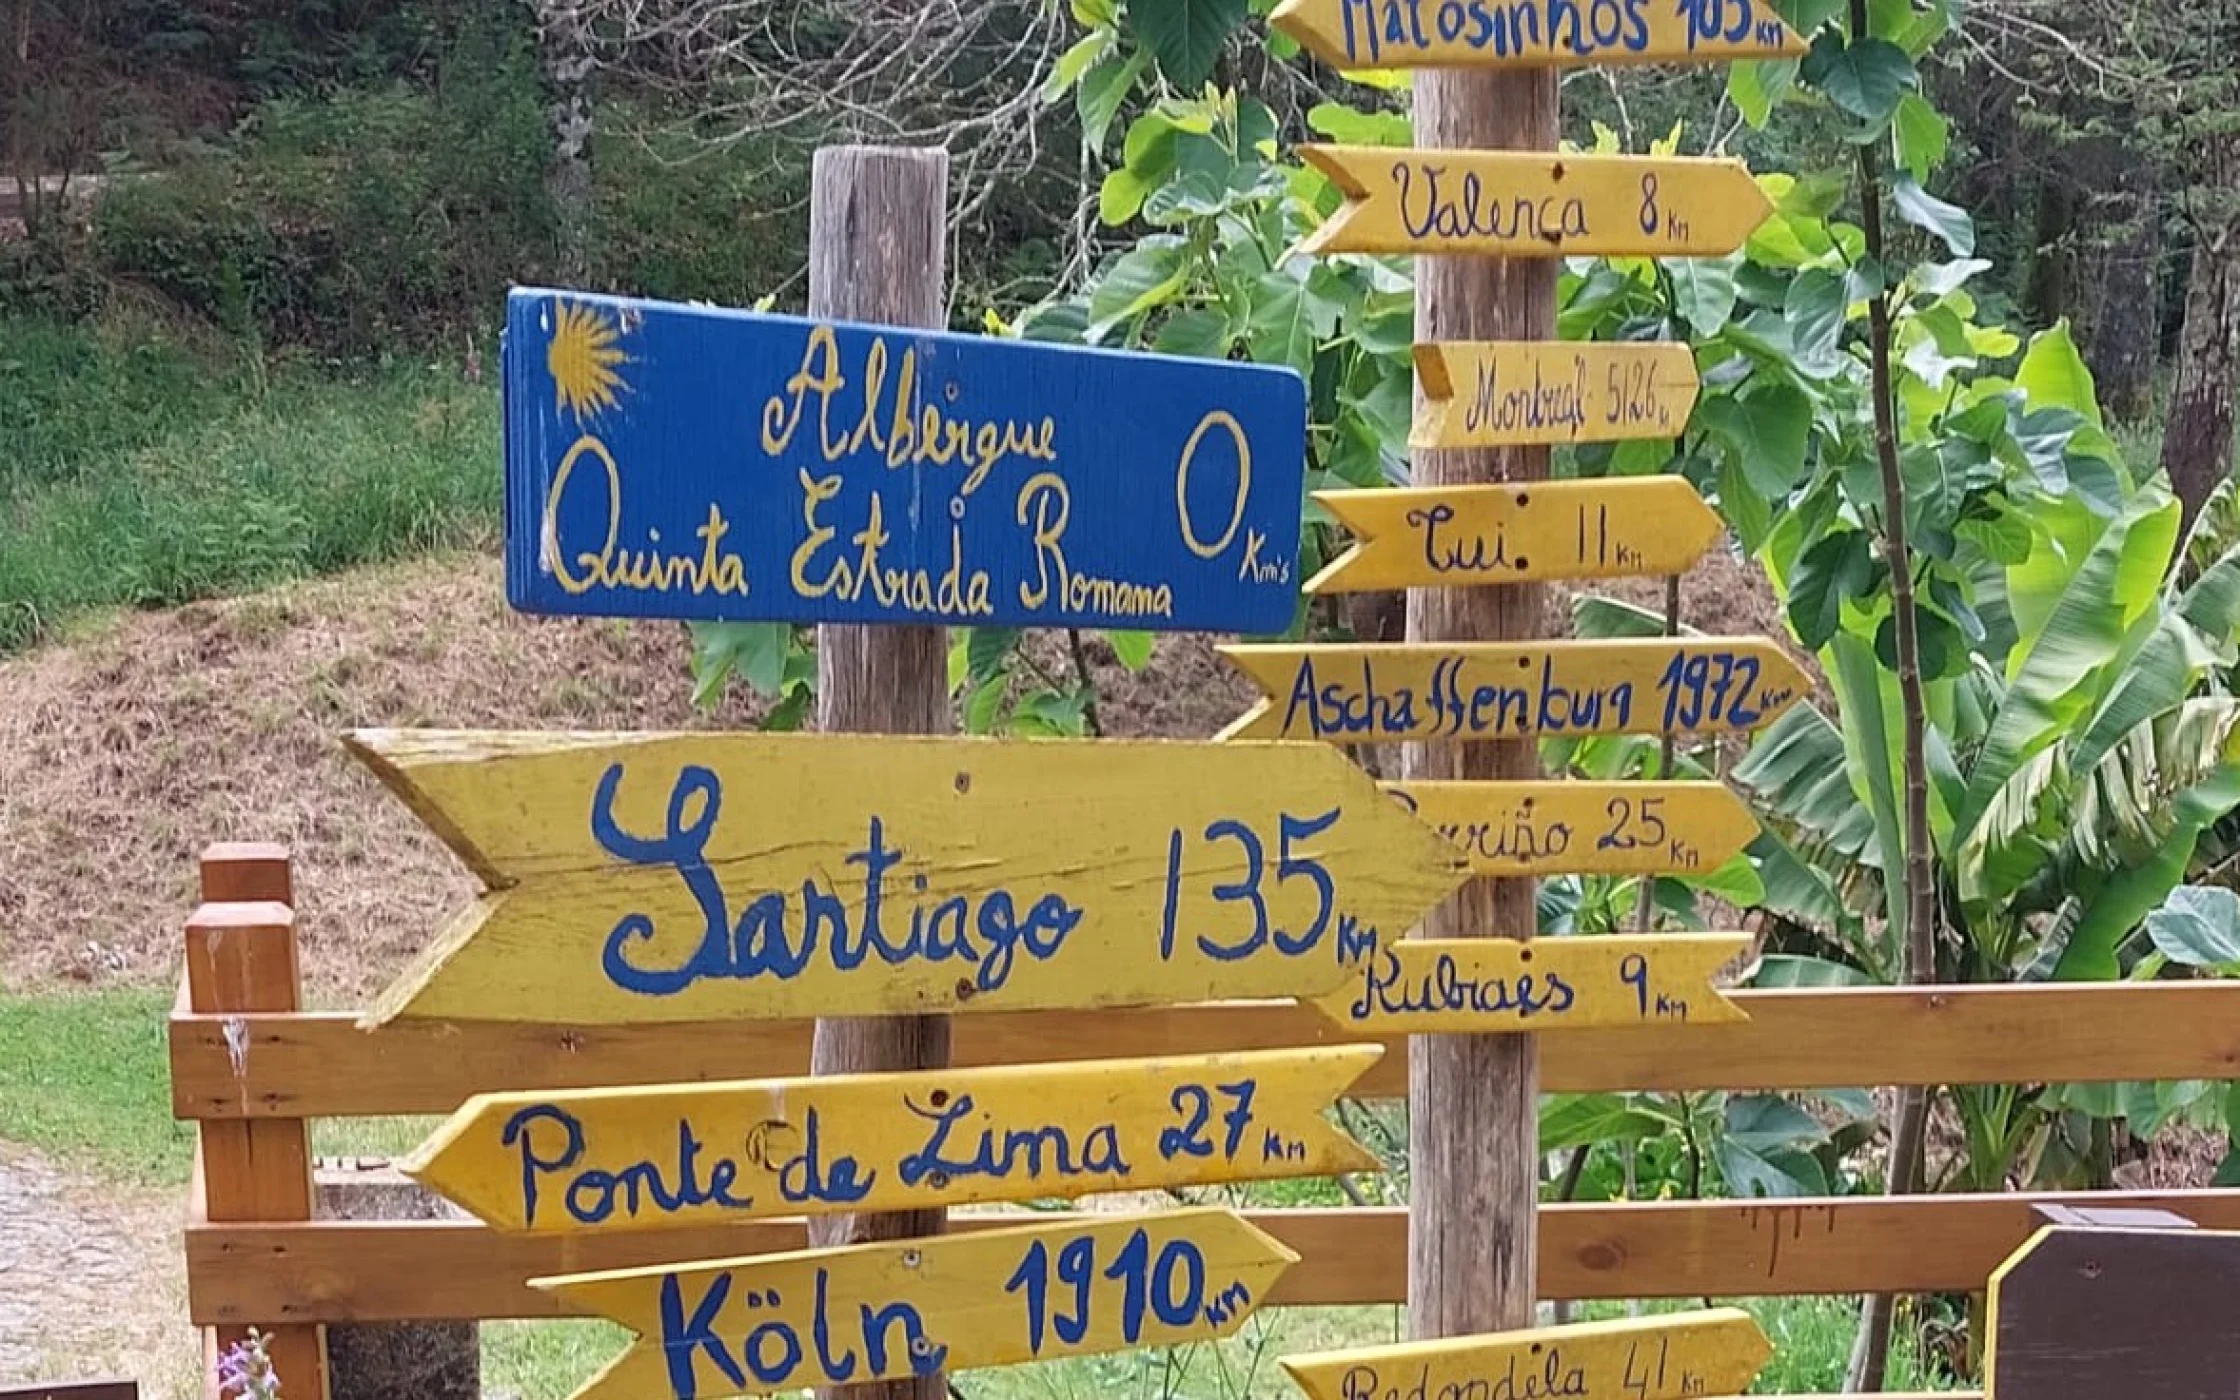 Matosinhos 105 Km
Valença 8 Km
Montreal 5126
Tui. 11 Km
Aschaffenburg 1972 Km
25 Km
Rubiaes 9 Km
Redondela 41 Km
Albergue
Quinta Estrada Romana
0 Km's
Santiago 135 Km
Ponte de Lima 27 Km
Köln 1910 Km